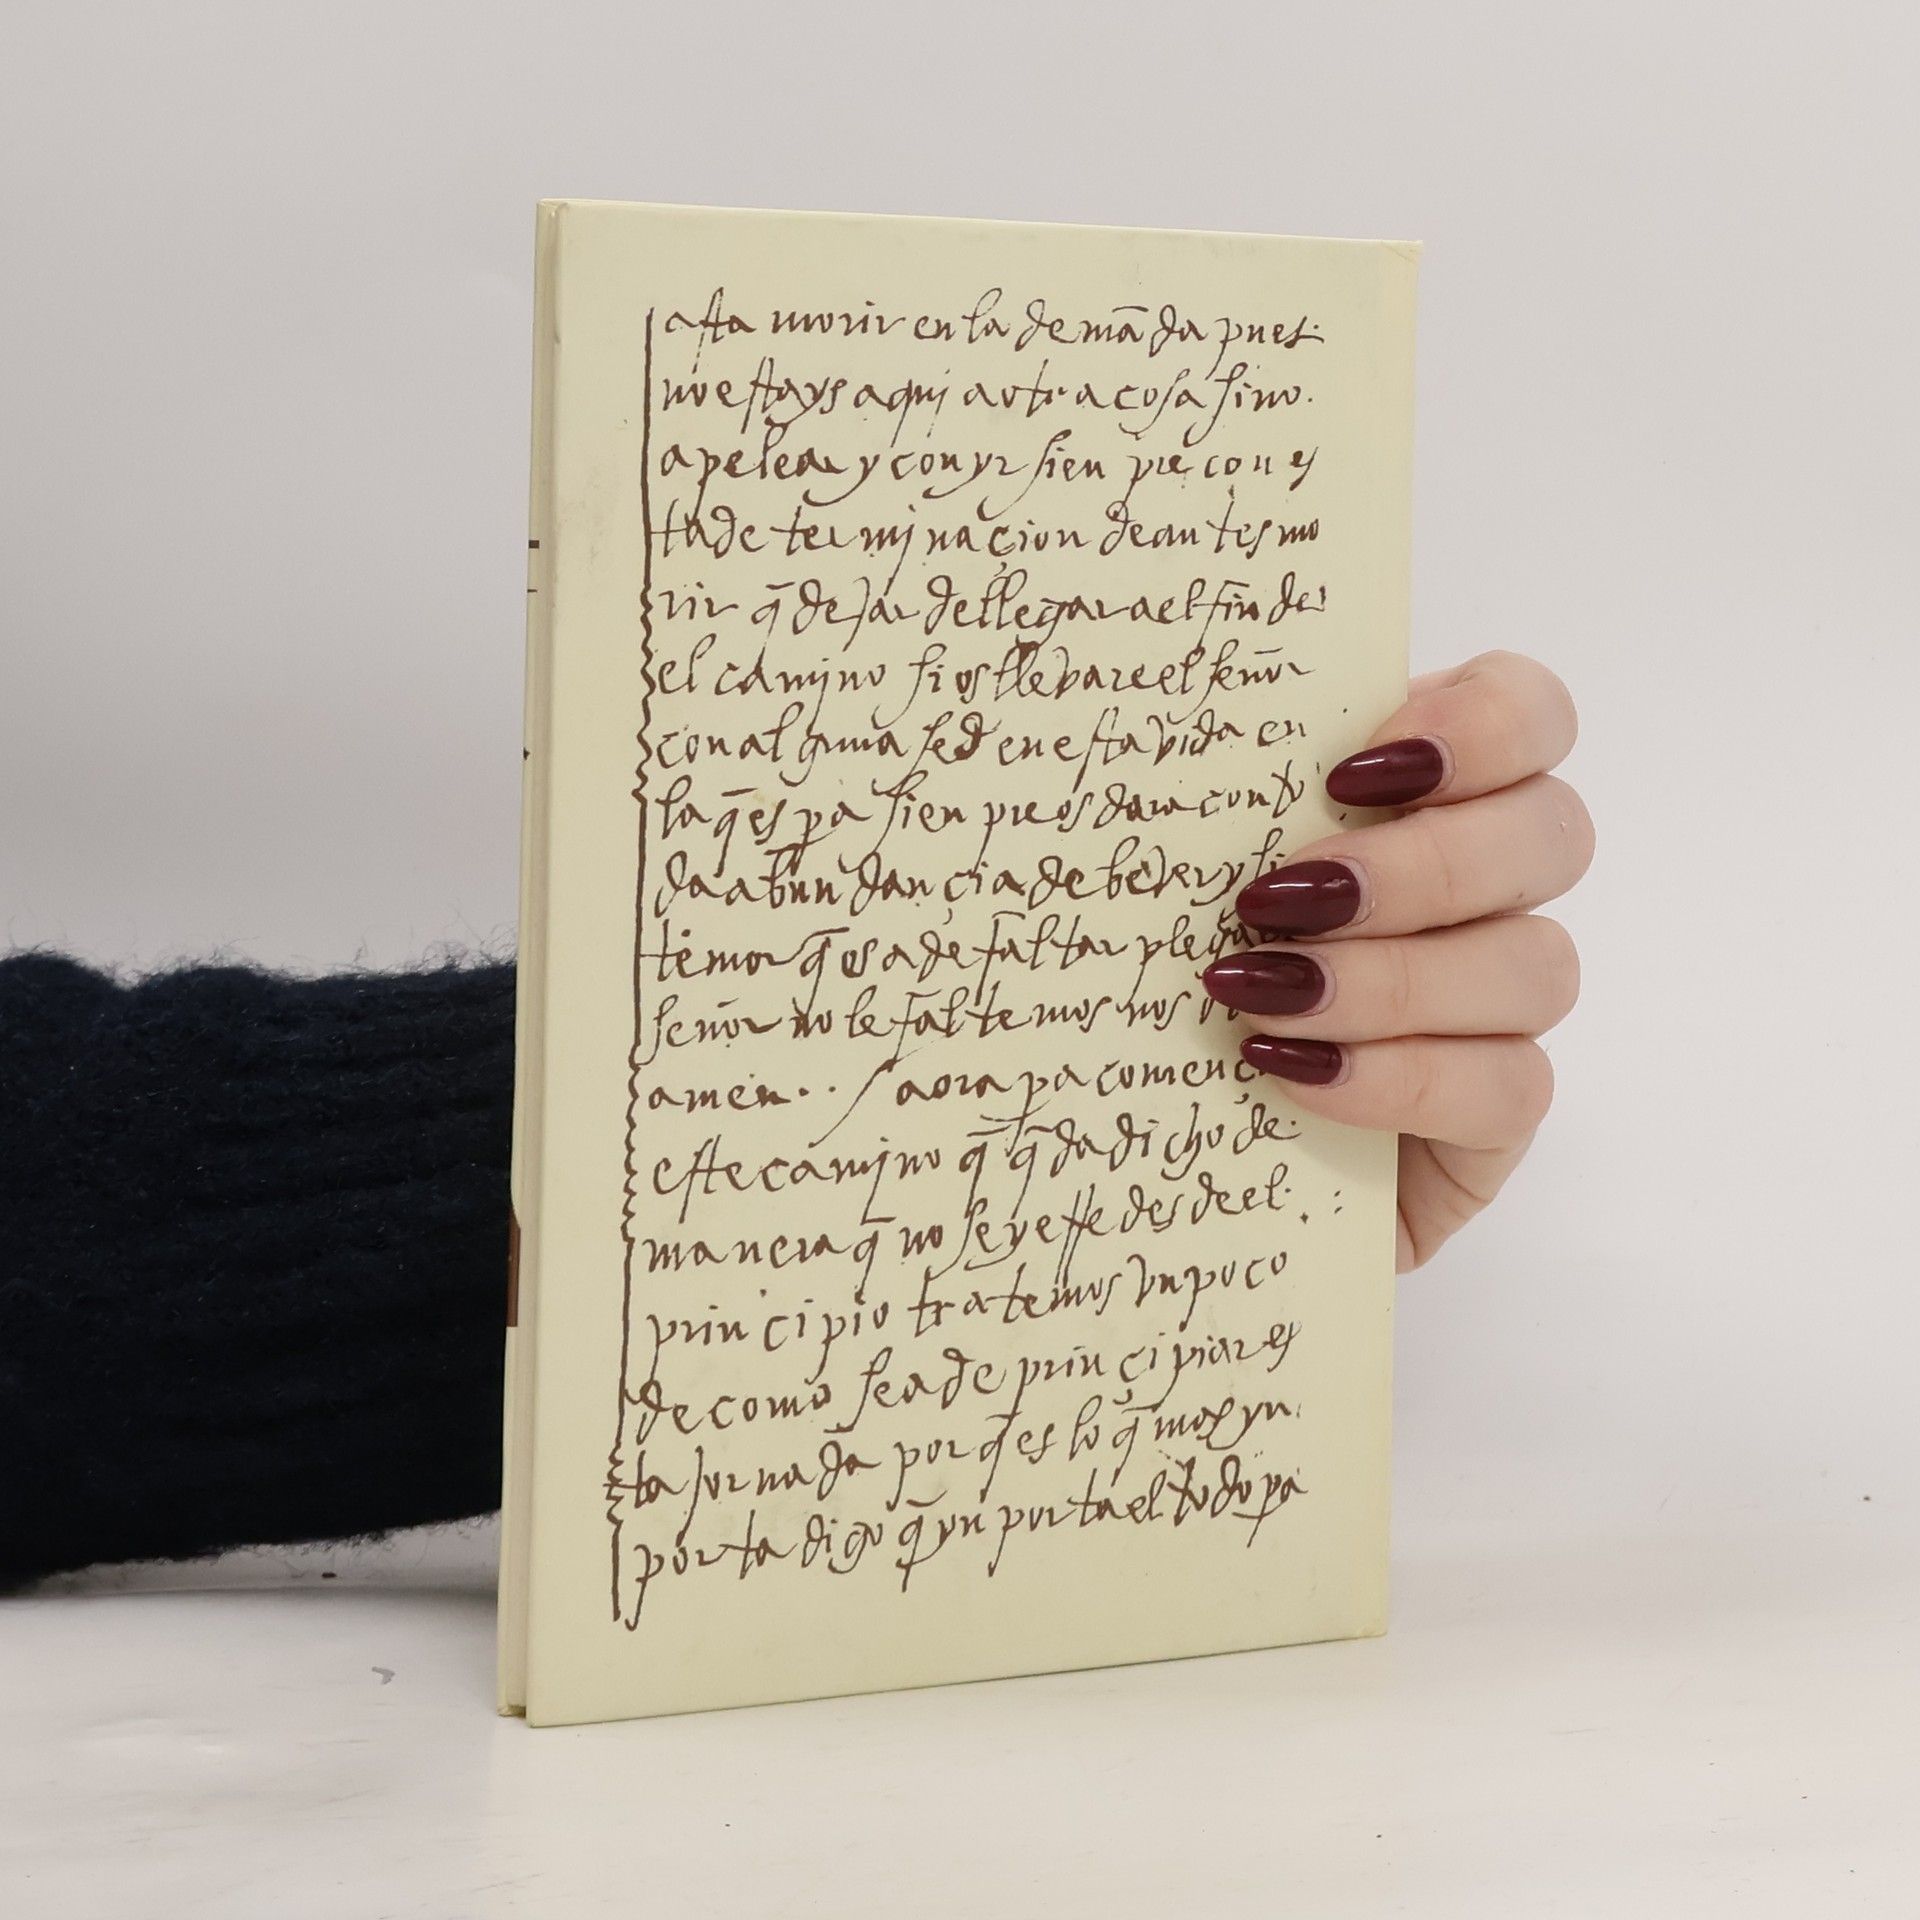 asta morir en la demāda pues
no estays aquj a otra cosa sino.
a pelear y con yr sien pre con es
ta de termj naçion de an tes mo
rir q̄ dejar de llegar a el fin de
el camjno si os llevare el señor
con al guna sed en esta vida en
la q̄ es pa sien pre os dara con to
da abun dançia de bever y si
temor q̄ os a de fal tar plega
señor no le fal temos nos
amen . . / aora pa començ
este camjno q̄ q̄da dicho de.
manera q̄ no se yerre desde el.
prinçipio tratemos un poco
de como se a de prinçipiar es
ta jornada por q̄ es lo q̄ mas yn
porta digo q̄ yn porta el todo pa